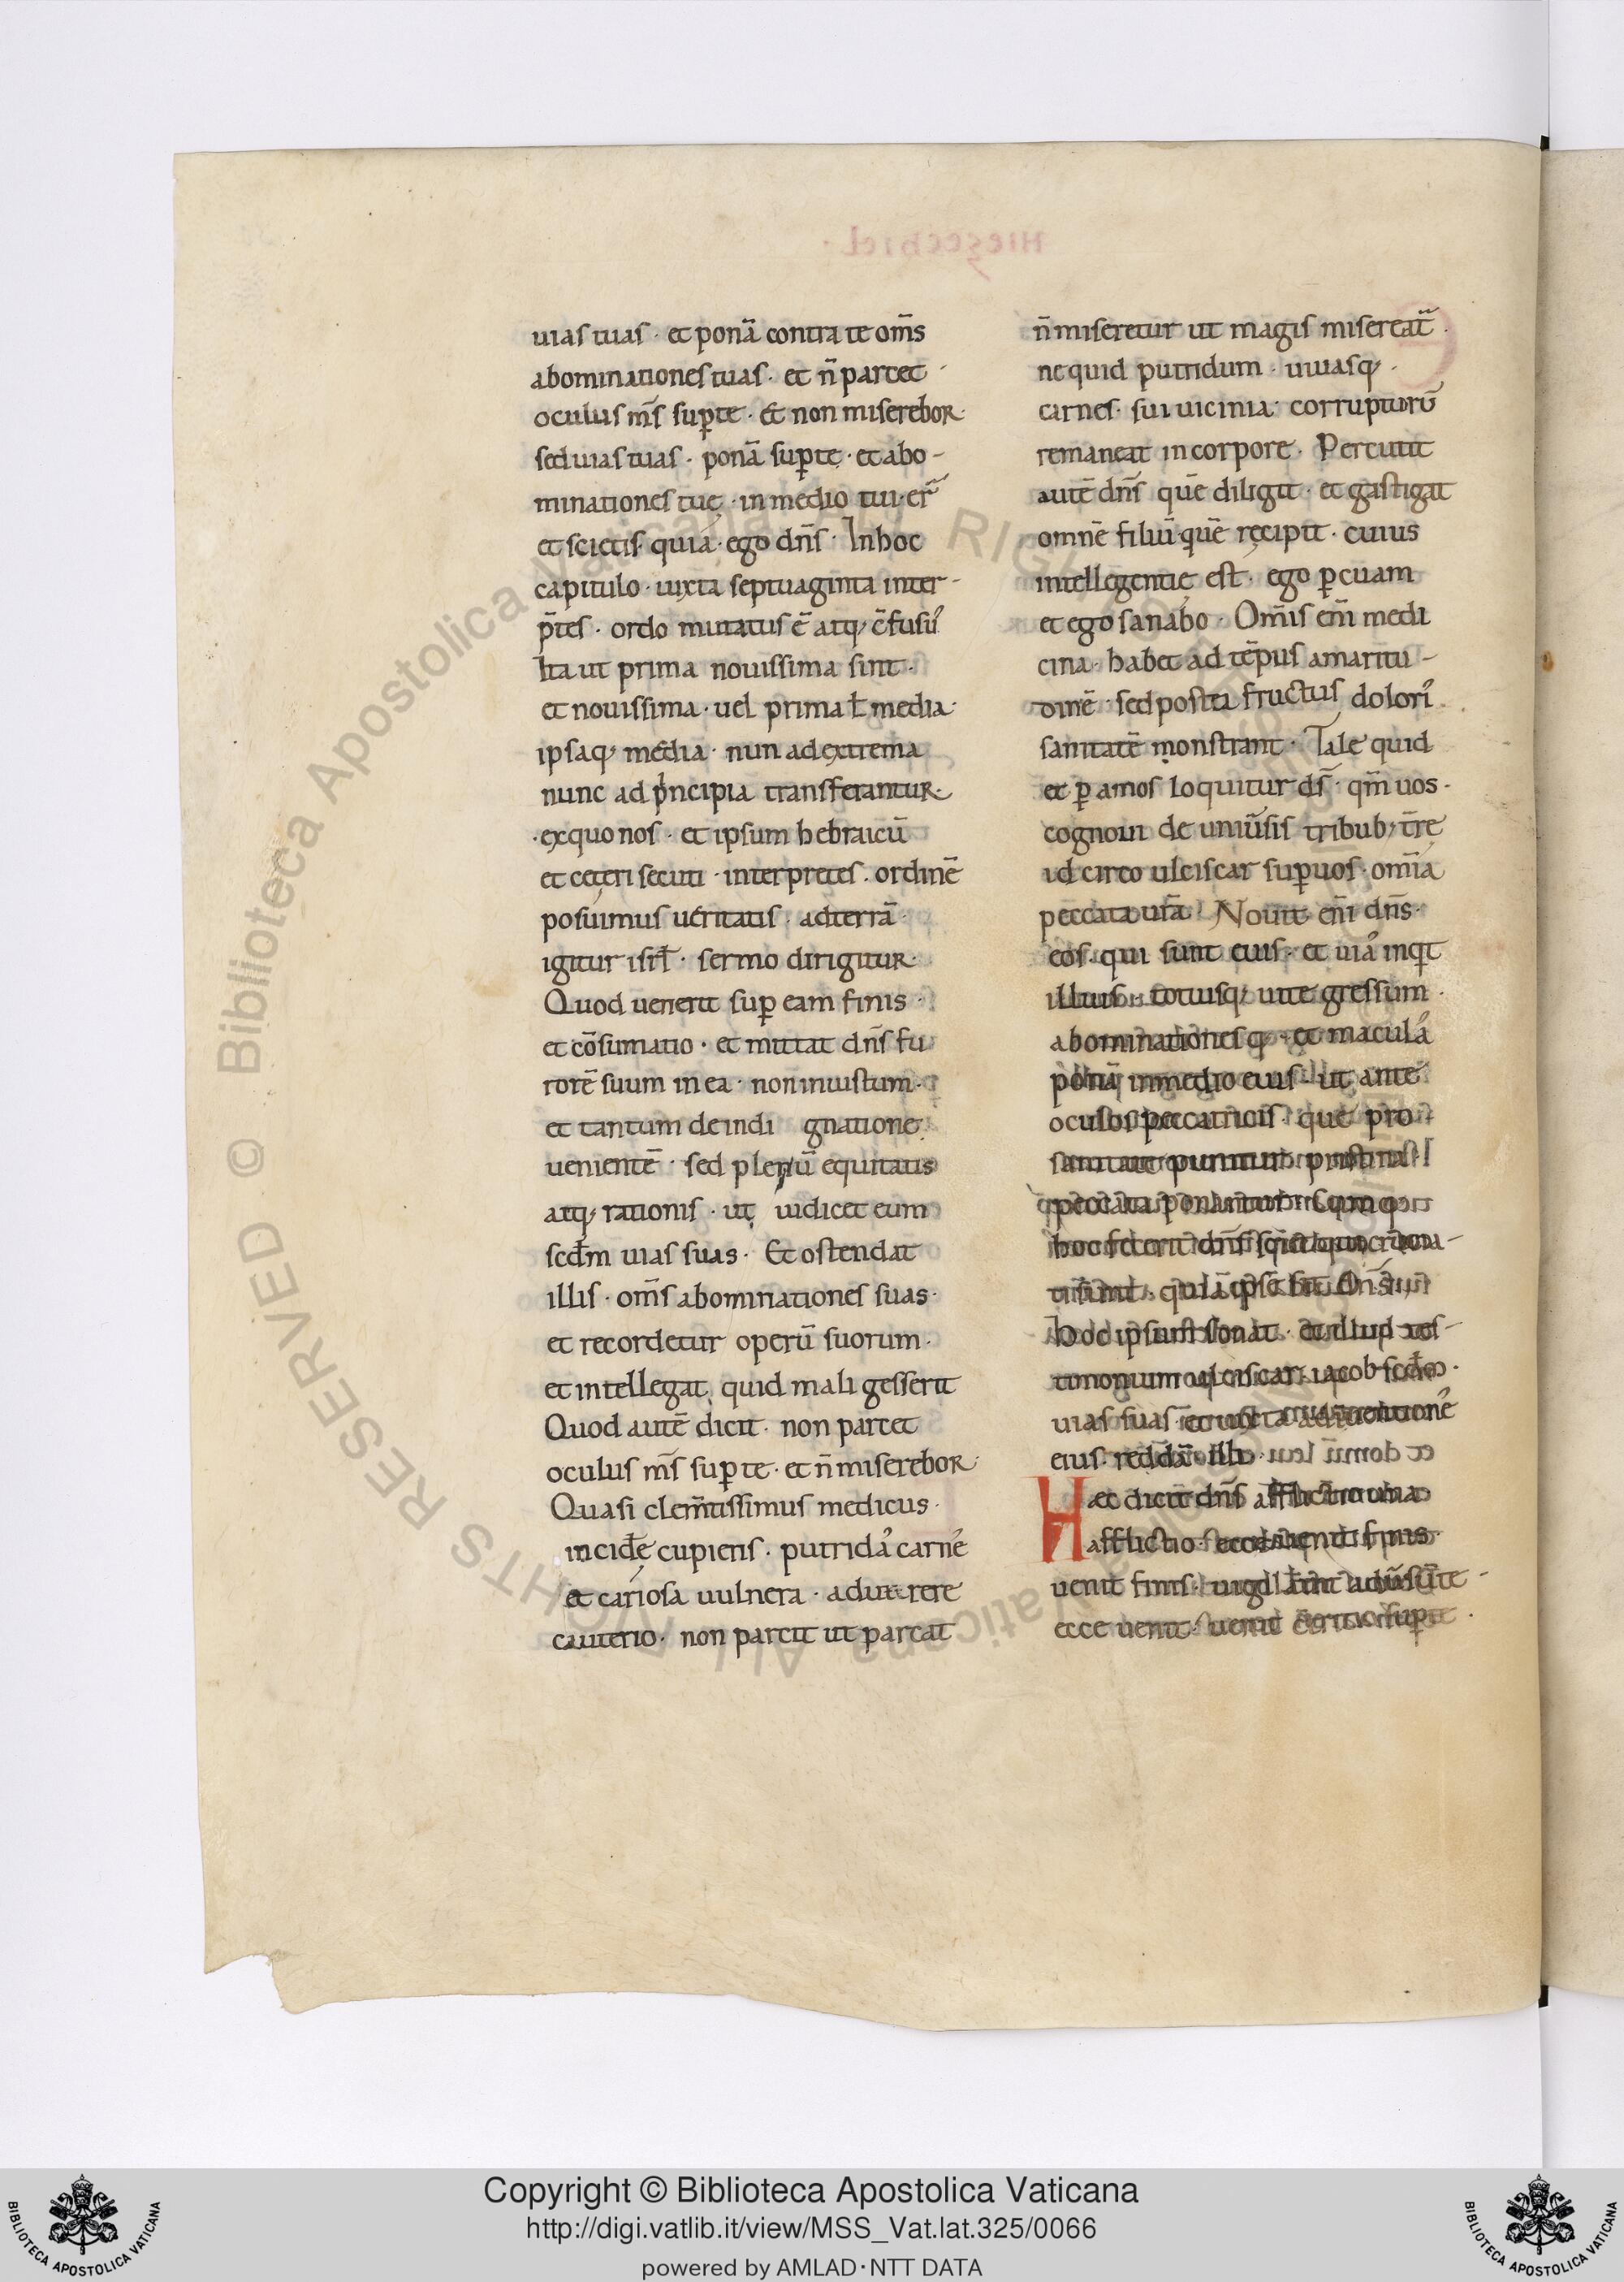 uias tuas · et ponā contra te om̄s
abominationes tuas · et n̄ parcet ·
oculus m̄s sup̱ te · Et non miserebor ·
sed uias tuas · ponā sup̱ te · et abo-
minationes tuę · in medio tui · er̄
et scietis · quia · ego dn̄s · In hoc
capitulo · iuxta septuaginta inter-
p̄tes · ordo mutatus ē atq; c̄fusus
Ita ut prima nouissima sint ·
et nouissima · uel prima ł media ·
ipsaq; media · nun ad extrema
nunc ad pncipia transferantur ·
· ex quo nos · et ipsum hebraicū
et ceteri secuti · interpretes · ordinē
posuimus ueritatis · ad terrā ·
igitur isrł · sermo dirigitur ·
Quod uenerit sup̱ eam finis ·
et cōsumatio · et mittat dn̄s fu
rorē suum in ea · non iniustum ·
et tantum de indi gnatione
uenientē · sed plenū equitatis
atq; rationis · ut iudicet eum
scd̄m uias suas · Et ostendat
illis · om̄s abominationes suas ·
et recordetur operū suorum ·
et intellegat quid mali gesserit
Quod autē dicit · non parcet
oculus m̄s sup̱ te · et n̄ miserebor ·
Quasi clem̄tissimus medicus ·
incidere cupiens · putridas carnes
et cariosa uulnera · adurere
cauterio · non parcit ut parcat
n̄ miseretur ut magis misereat̄ ·
ne quid putridum · uiuasq; ·
carnes · sui uicinia · corrupturū
remaneat in corpore · Percutit
autē dn̄s quē diligit · et gastigat
omnē filiū · quē recipit · cuius
intellegentię est · ego p̱cuam
et ego sanabo · Om̄is em̄ medi
cina · habet ad tēpus amaritu-
dinē · sed postea fructus doloris
sanitatē monstrant · Tale quid
et p̱ amos loquitur ds̄ · qm̄ uos ·
cognoui de uniu̅sis tribub; tr̄ę
idcirco ulciscar sup̱ uos · om̄ia
peccata ur̄a · Nouit em̄ dn̄s ·
eos · qui sunt eius · et uias inqt
illius · totiusq; uite gressum ·
abominationesq · et maculas
ponā in medio eius · ut ante
oculos peccatricis · que pro
sanitate punitur · pristina
peccata ponantur · Cumq
hoc fecerit dn̄s
Hoc ipsum sonat · et illud tes-
timonium ulciscar iacob scd̄m ·
uias suas · et iuxta adinuentiones
eius · reddā illi ·
Hęc dicit dn̄s afflictio una
afflictio · ecce uenit finis ·
uenit finis · uigilauit aduersū te -
ecce uenit · uenit c̄tritio sup̱ te ·
Copyright © Biblioteca Apostolica Vaticana
http://digi.vatlib.it/view/MSS_Vat.lat.325/0066
powered by AMLAD·NTT DATA